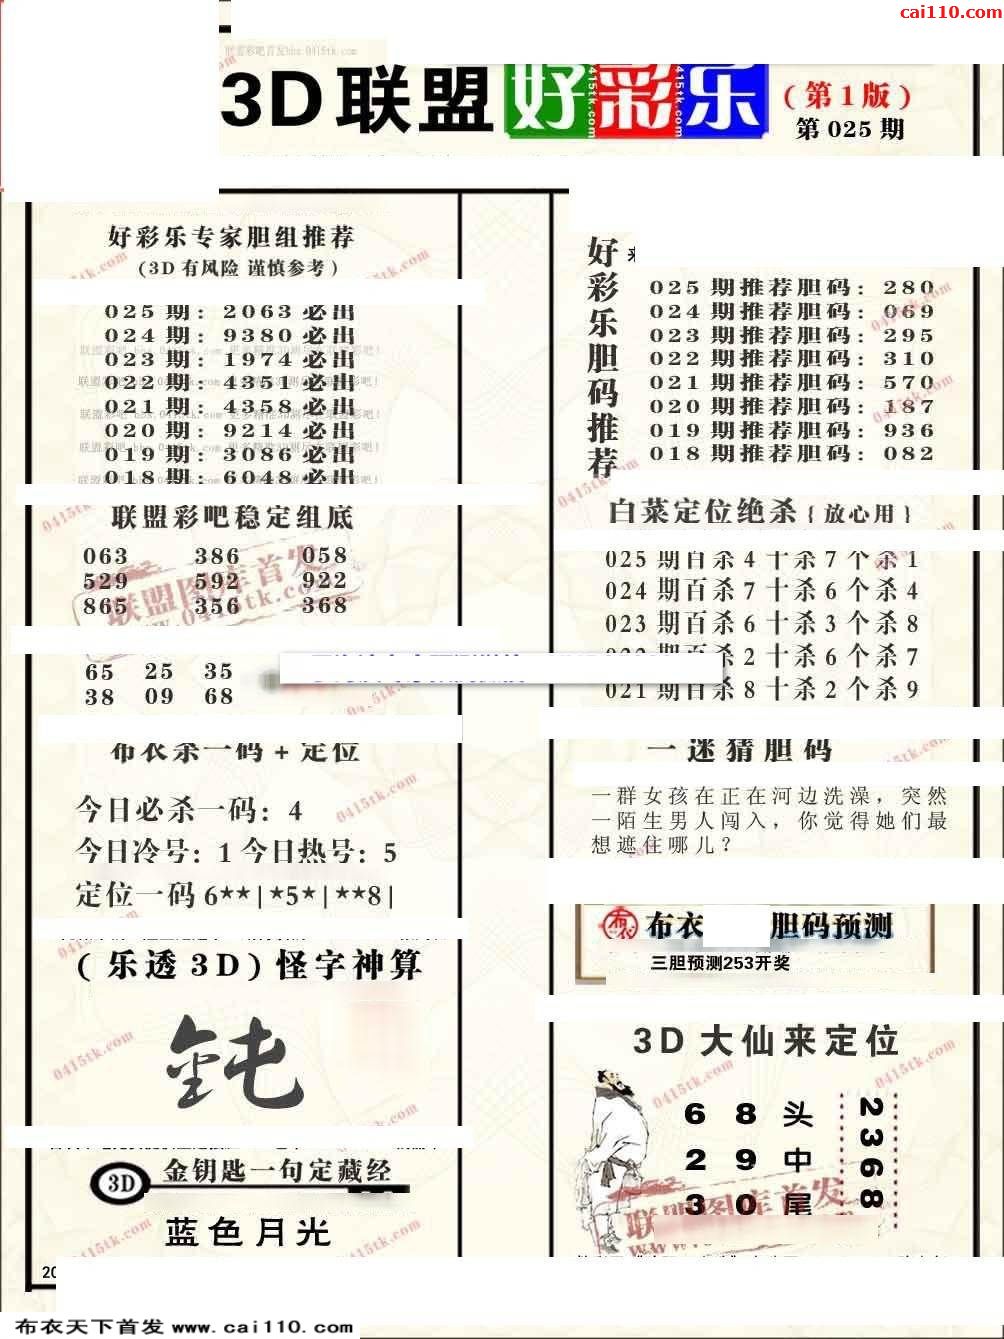 cai110.com
3D联盟好彩乐
(第1版)
第025期
好彩乐专家胆组推荐
(3D有风险 谨慎参考)
025期: 2063必出
024期: 9380必出
023期: 1974必出
022期: 4351必出
021期: 4358必出
020期: 9214必出
019期: 3086必出
018期: 6048必出
联盟彩吧稳定组底
063 386 058
529 592 922
865 356 368
65 25 35
38 09 68
布衣杀一码+定位
今日必杀一码: 4
今日冷号: 1 今日热号: 5
定位一码6★★|★5★|★★8|
(乐透3D)怪字神算
钝
3D 金钥匙一句定藏经
蓝色月光
好彩乐胆码推荐
025期推荐胆码: 280
024期推荐胆码: 069
023期推荐胆码: 295
022期推荐胆码: 310
021期推荐胆码: 570
020期推荐胆码: 187
019期推荐胆码: 936
018期推荐胆码: 082
白菜定位绝杀{放心用}
025期百杀4十杀7个杀1
024期百杀7十杀6个杀4
023期百杀6十杀3个杀8
杀2十杀6个杀7
021期百杀8十杀2个杀9
一迷猜胆码
一群女孩在正在河边洗澡，突然
一陌生男人闯入，你觉得她们最
想遮住哪儿？
布衣 布衣 胆码预测
三胆预测253开奖
3D大仙来定位
6 8 头
2 9 中
3 0 尾
2368
布衣天下首发 www.cai110.com